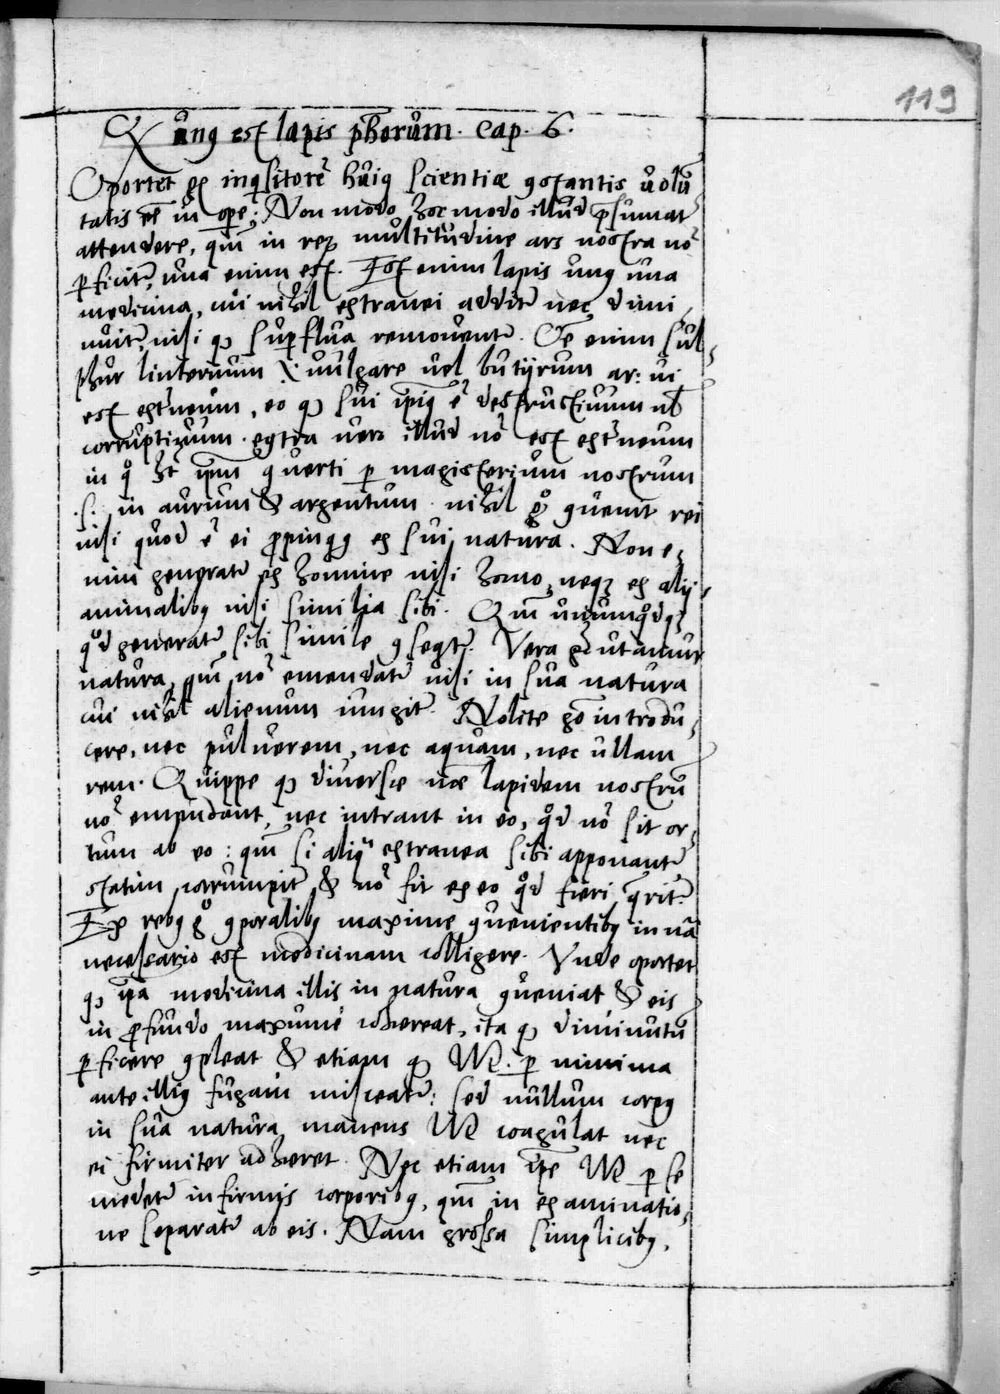 119
Qd ung est lapis phorum. Cap. 6.
Oportet inqsitorē huig scientiæ gstantis volū
tatis eē in ope; Non modo hoc modo illud psumat
attendere, qm in rez multitudine ars nostra nō
pficitr, una enim est. Est enim lapis ung una
medicina, cui nihil extranei additr nec dimi
nuitr, nisi qz supflua removentr. Oē enim sul
phur vulgare vel butijrum ar: vi
est extneum, eo qz sui ipig ē destructivum vl
corruptivum. egtra vero illud nō est extneum
in qo ht gverti p magisterium nostrum
.s. in aurum & argentum. nihil go gvenit rei
nisi quod ē ei propinqg ex sui natura. Non e
nim generatr ex homine nisi homo, neqz ex alij
animalibg nisi similia sibi. Qm unumqodqz
qod generatr sibi simile gseqtr. Vera go utamur
natura, qm nō emendatr nisi in sua natura
cui nihil alienum iungitr. Nolite go introdu
cere, nec pulverem, nec aquam, nec ullam
rem. Quippe qz diversæ næ lapidem nostrū
nō emendant, nec intrant in eo, qod nō sit or
tum ab eo: qm si aliq extranea sibi apponantr
statim corrumpitr & nō fit ex eo qod fieri qritr.
Ex rebg go gporalibg maxime gvenientibg in nā
necessario est medicinam colligere. Unde oportet
qz ipa medicina illis in natura gveniat & eis
in profundo maxumè adhereat, ita qz diminutū
pficere gpleat & etiam qz p minima
ante illig fugam misceatr: sed nullum corpg
in sua natura manens coagulat nec
ei firmiter adhæret. Nec etiam ipe p se
medetr infirmis corporibg, qm in examinatio
ne separatr ab eis. Nam grossa simplicibg,